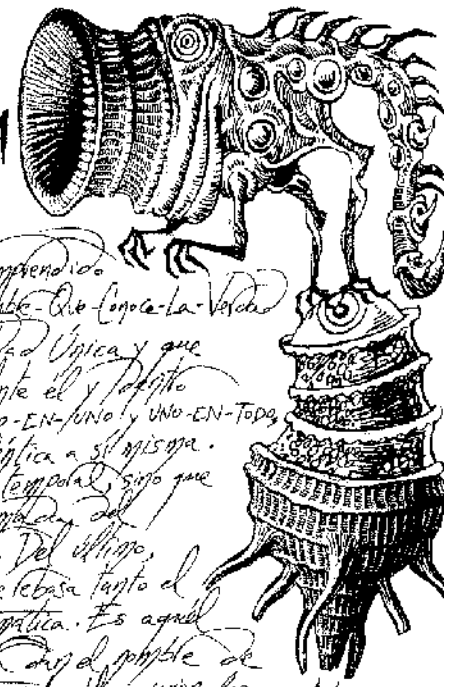 mprendido
mbre-Que-Conoce-La-Verdad
dad Única y que
nte él y dentro
O-EN-UNO y UNO-EN-TODO,
ntica a sí misma.
temporal, sino que
Del último,
rebasa tanto el
mática. Es aquél
dan el nombre de